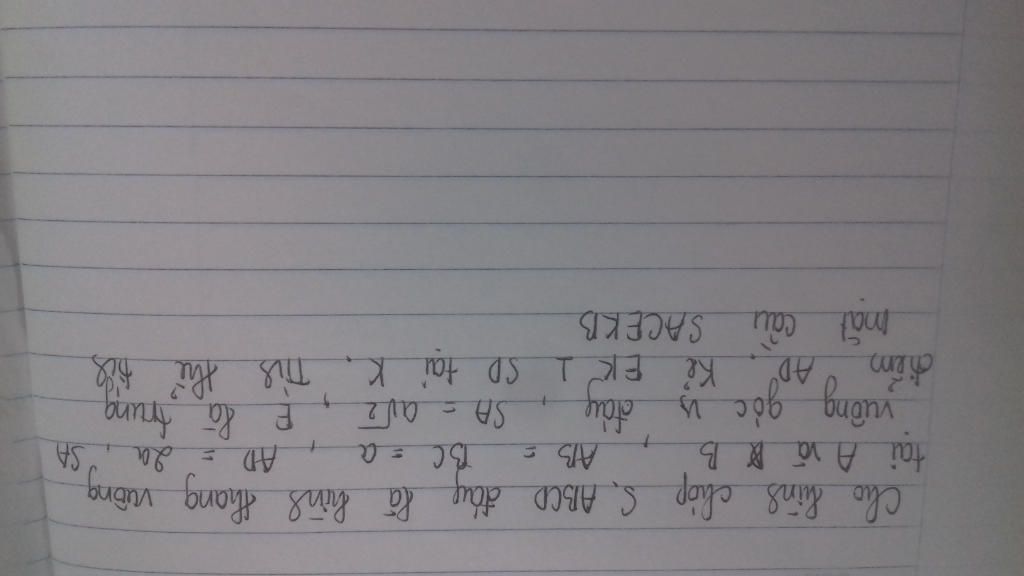 Cho hình chóp S.ABCD đáy là hình thang vuông
tại A và B, AB = BC = a, AD = 2a, SA
vuông góc vs đáy, SA = a√2, E là trung
điểm AD. Kẻ EK ⊥ SD tại K. Tính thể tích
mặt cầu SACEKB